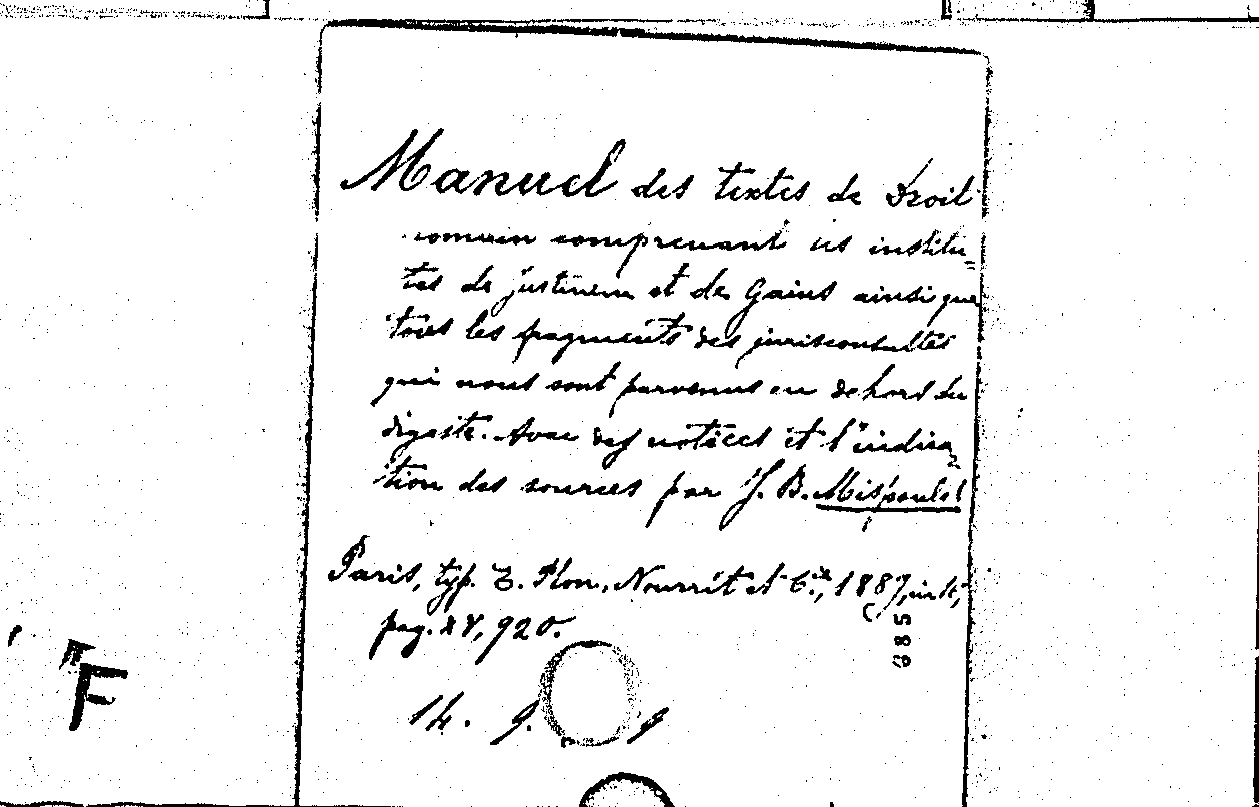 Manuel des textes de Droit
romain comprenant les institu=
tes de Justinien et de Gaius ainsi que
tous les fragments des jurisconsultes
qui nous sont parvenus en dehors du
digeste. Avec des notices et l'indica=
tion des sources par J. B. Mispoulet
Paris, typ. E. Plon, Nourrit et C.ie, 1889, in 16,
pag. XV, 920.
885
14. g. g
F